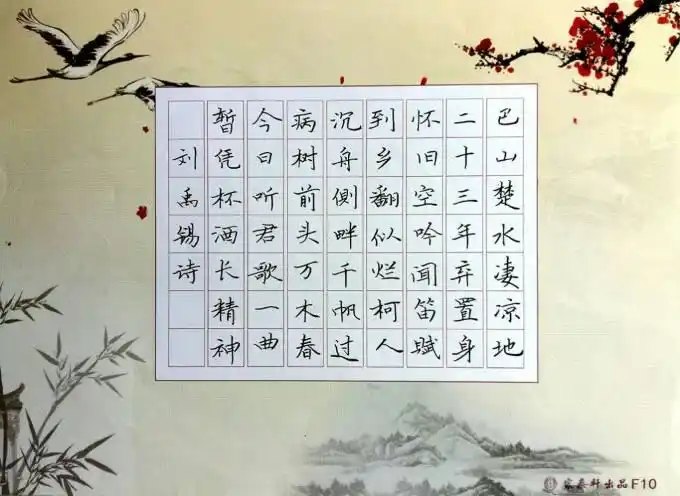 巴山楚水凄凉地
二十三年弃置身
怀旧空吟闻笛赋
到乡翻似烂柯人
沉舟侧畔千帆过
病树前头万木春
今日听君歌一曲
暂凭杯酒长精神
刘禹锡诗
宏泰轩出品F10